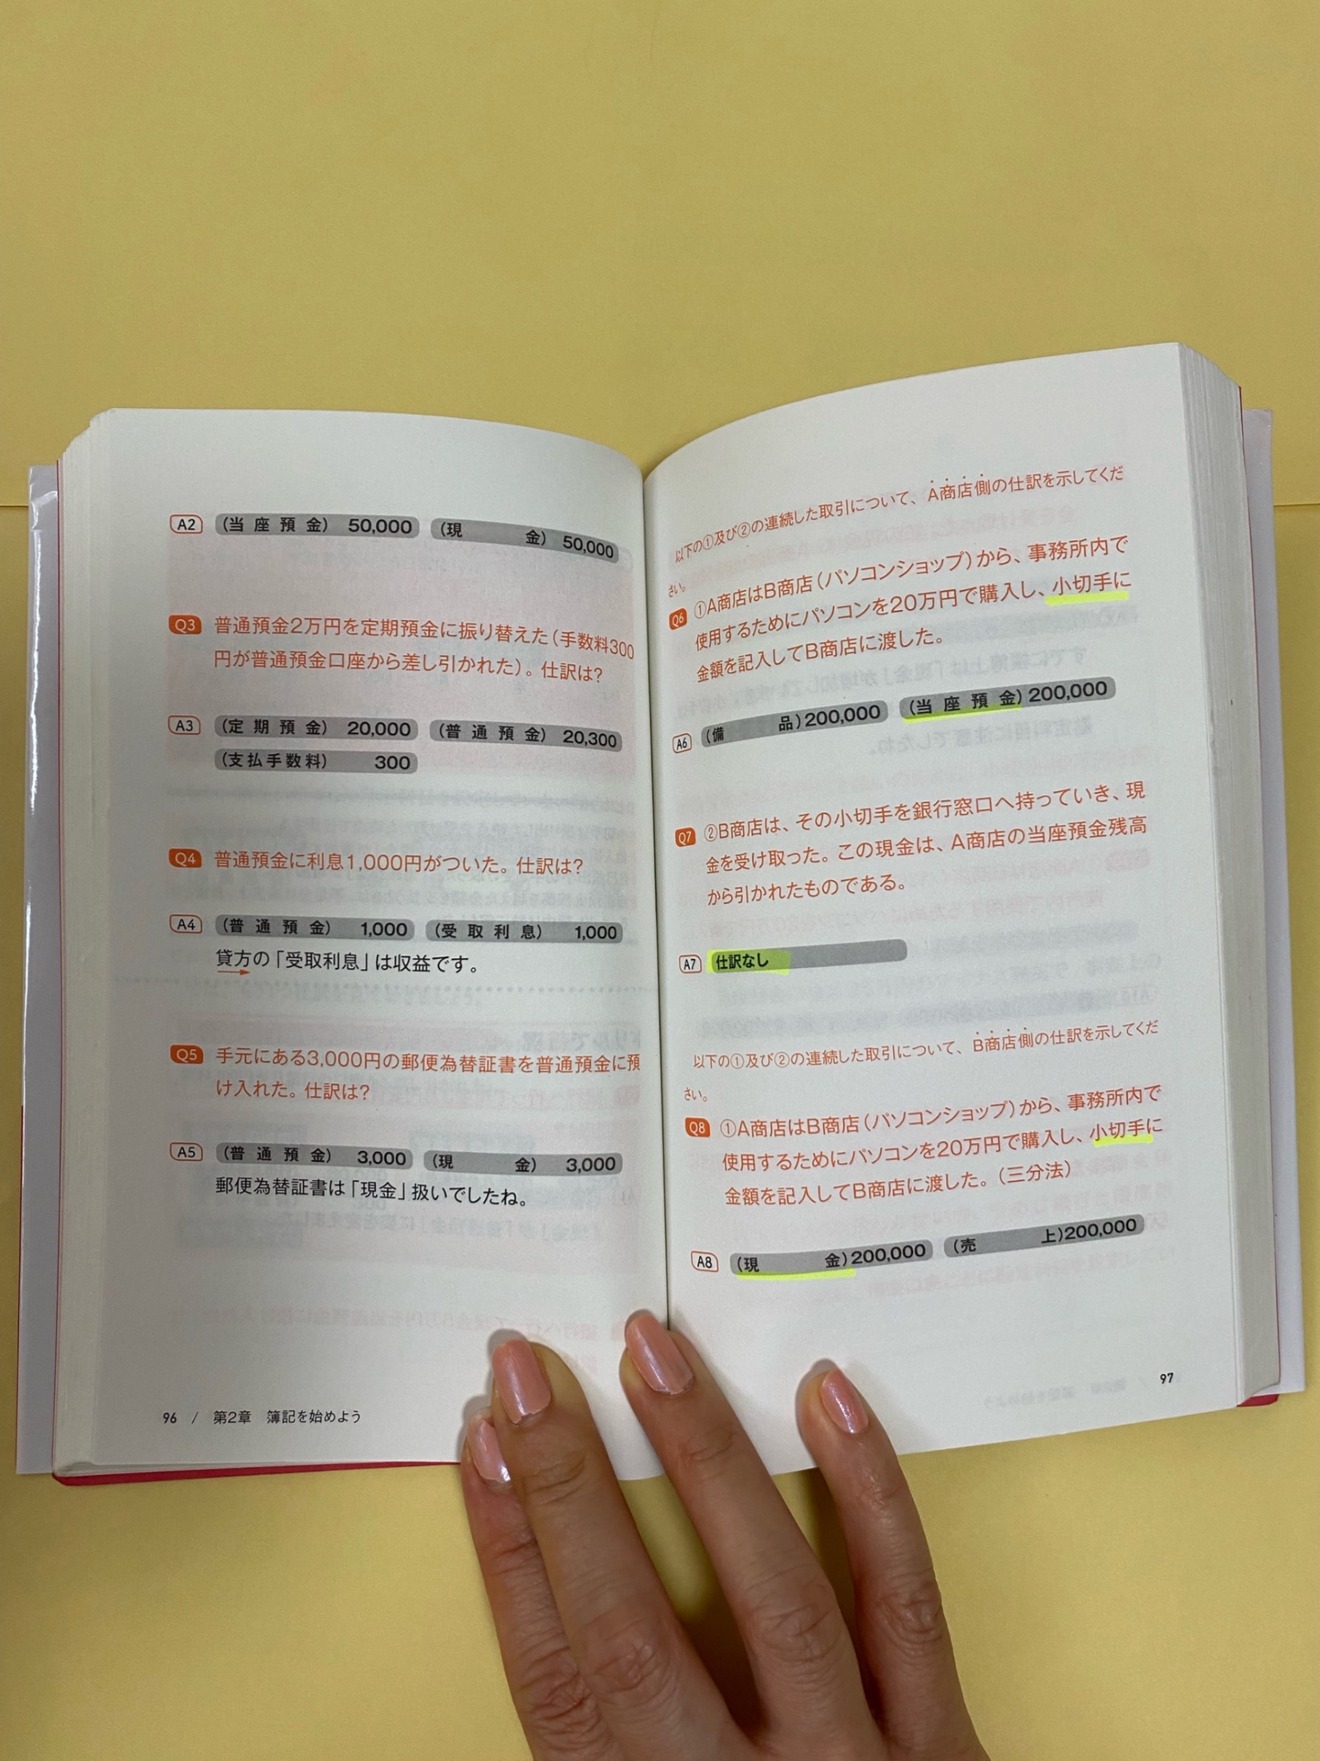 A2 (当座預金) 50,000 (現 金) 50,000
Q3 普通預金2万円を定期預金に振り替えた(手数料300
円が普通預金口座から差し引かれた)。仕訳は?
A3 (定期預金) 20,000 (普通預金) 20,300
(支払手数料) 300
Q4 普通預金に利息1,000円がついた。仕訳は?
A4 (普通預金) 1,000 (受取利息) 1,000
貸方の「受取利息」は収益です。
Q5 手元にある3,000円の郵便為替証書を普通預金に預
け入れた。仕訳は?
A5 (普通預金) 3,000 (現 金) 3,000
郵便為替証書は「現金」扱いでしたね。
96 / 第2章 簿記を始めよう
以下の①及び②の連続した取引について、A商店側の仕訳を示してくだ
さい。
Q6 ①A商店はB商店(パソコンショップ)から、事務所内で
使用するためにパソコンを20万円で購入し、小切手に
金額を記入してB商店に渡した。
A6 (備 品)200,000 (当座預金)200,000
Q7 ②B商店は、その小切手を銀行窓口へ持っていき、現
金を受け取った。この現金は、A商店の当座預金残高
から引かれたものである。
A7 仕訳なし
以下の①及び②の連続した取引について、B商店側の仕訳を示してくだ
さい。
Q8 ①A商店はB商店(パソコンショップ)から、事務所内で
使用するためにパソコンを20万円で購入し、小切手に
金額を記入してB商店に渡した。(三分法)
A8 (現 金)200,000 (売 上)200,000
97